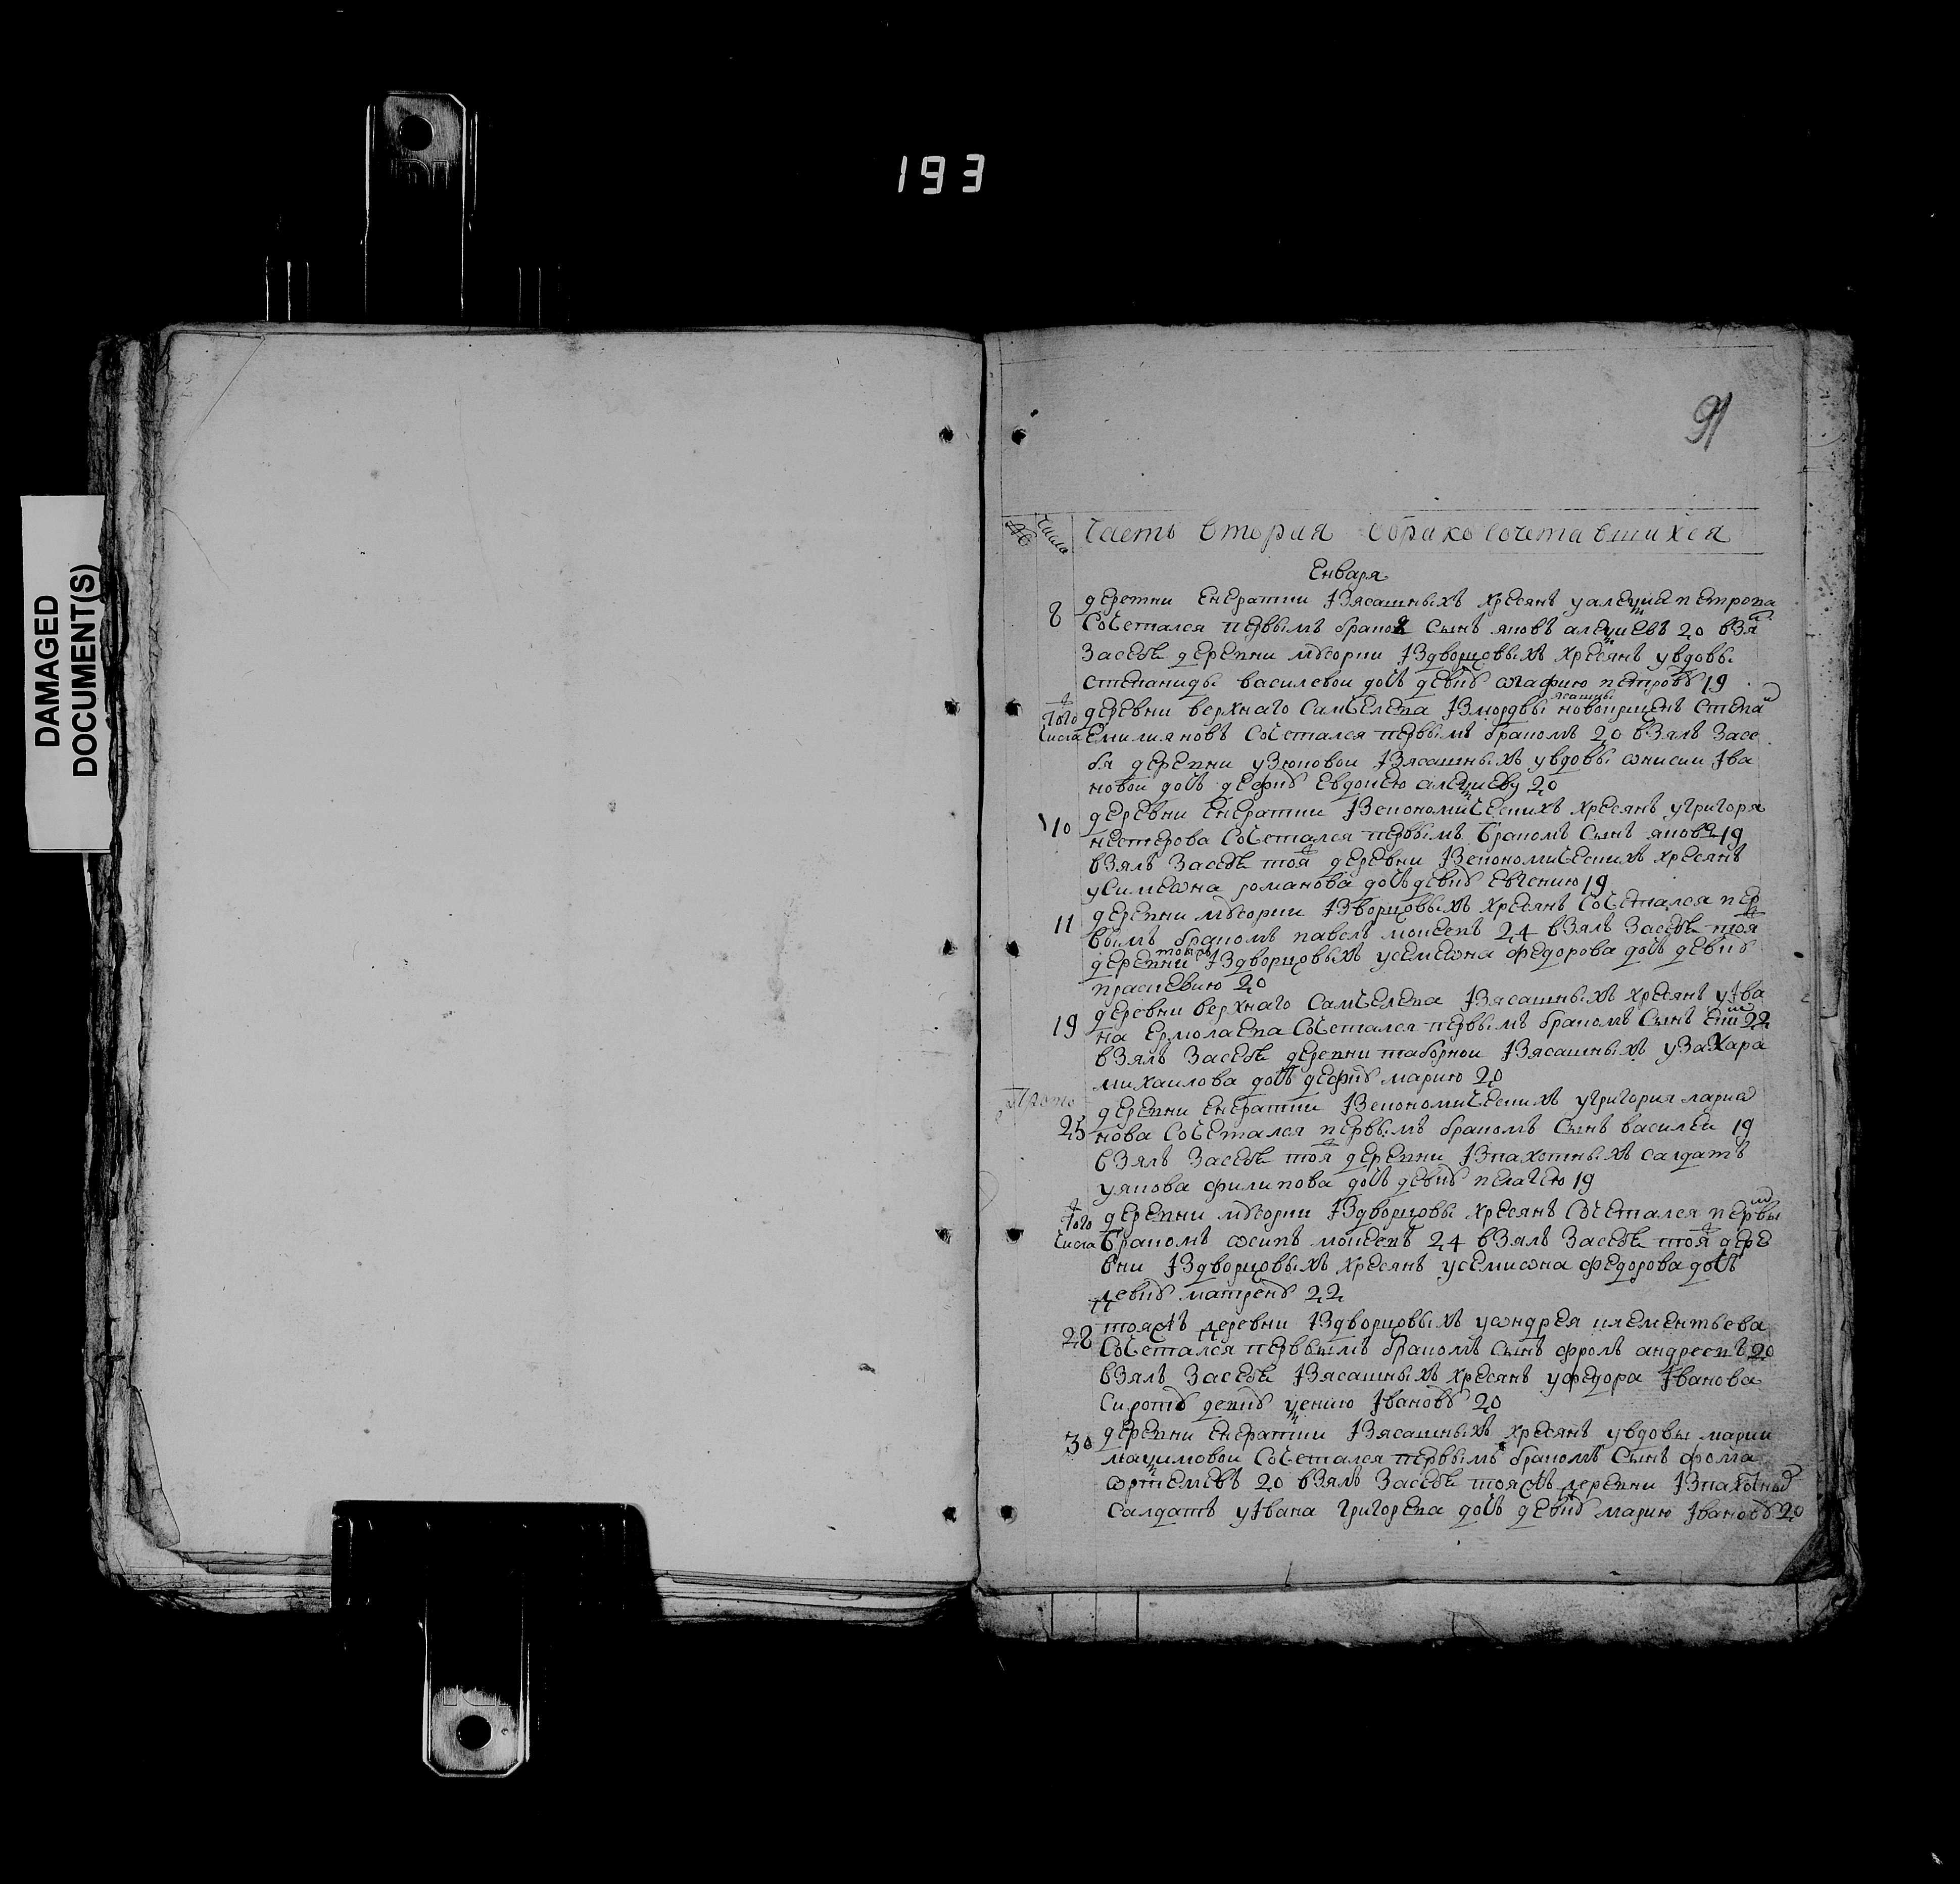 193
91
DAMAGED
DOCUMENT(S)
число
Часть втораяObрако сочетавшихся
Енваря
8 деревни Енератки Iзясашныхъ кресянъ у алеѯѣа петрова
Сочетался первымъ бракомъ Сынъ яковъ алеѯѣевъ 20 взя
Засебя деревни Iздворцовыхъ кресянъ у вдовы
степаниды василевои дочь девку агафию петрову 19
Того числа деревни верхнаго Самчелева Iзмордвы ясашны новокрщенъ степа
Емилияновъ Сочетался первымъ бракомъ 20 взялъ Засе
бя деревни узюковои Iзясашныхъ у вдовы анисии Iва
новои дочь девку Евдокею алеѯѣеву 20
10 деревни Енератки Iзекономическихъ кресянъ у григоря
нестерова Сочетался первымъ бракомъ Сынъ яковъ 19
взялъ Засебя тоя деревни Iзекономическихъ кресянъ
у Симеона романова дочь девку Евгению 19
11 деревни Iздворцовыхъ кресянъ Сочетался пер
вымъ бракомъ павелъ моисевъ 24 взялъ Засебя тоя
деревни Iздворцовыхъ у семеона федорова дочь девку
праскевию 20
19 деревни верхнаго Самчелева Iзясашныхъ кресянъ у Iва
на Ермолаева Сочетался первымъ бракомъ Сынъ 22
взялъ Засебя деревни таборнои Iзясашныхъ у Захара
михаилова дочь девку марию 20
25 деревни Енератки Iзекономическихъ у григория ларио
нова Сочетался первымъ бракомъ Сынъ василеи 19
взялъ Засебя тоя деревни Iзпахотныхъ салдатъ
у якова филипова дочь девку пелагею 19
Того числа деревни Iздворцовы кресянъ Сочетался первы
бракомъ осипъ моисевъ 24 взялъ Засебя тоя дере
вни Iздворцовыхъ кресянъ у семиона федорова дочь
девку матрену 22
28 тояжъ деревни Iздворцовыхъ у андрея клементьева
Сочетался первымъ бракомъ Сынъ фролъ андреевъ 20
взялъ Засебя Iзясашныхъ кресянъ у федора Iванова
Сироту девку ѯению Iванову 20
30 деревни Енератки Iзясашныхъ кресянъ у вдовы марии
маѯимовои Сочетался первымъ бракомъ Сынъ фома
артемевъ 20 взялъ Засебя тояжъ деревни Iзпахотны
салдатъ у Iвана григорева дочь девку марию Iванову 20